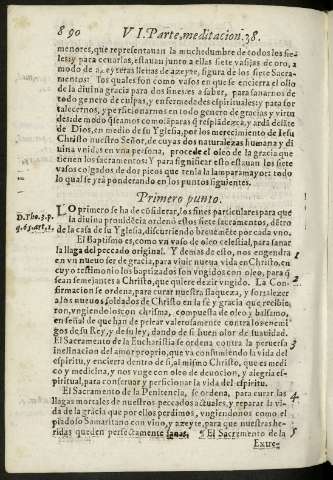 890 VI. Parte, meditacion. 38.
menores, que representauan la muchedumbre de todos los fieles;
y para ceuarlas, estauan junto a ellas siete vasijas de oro, a
modo de azeyteras llenas de azeyte, figura de los siete Sacramentos:
los quales son como vasos en que se encierra el olio
de la diuina gracia para dos fines: es a saber, para sanarnos de
todo genero de culpas, y enfermedades espirituales; y para fortalecernos,
y perficionarnos en todo genero de gracias y virtudes:
de modo que seamos como lamparas q̃ resplādezcā, y ardā delāte
de Dios, en medio de su Yglesia, por los merecimiento de Iesu
Christo nuestro Señor, de cuyas dos naturalezas humana y diuina
vnidas en vna persona, procede el olio de la gracia que
tienen los sacramentos: Y para significar esto estauan los siete
vasos colgados de dos picos que tenia la lampara mayor: todo
lo qual se yrá ponderando en los puntos siguientes.
Primero punto.
D. Tho. 3. p.
q. 65. art. 1.
LO primero se ha de cōsiderar, los fines particulares para que
la diuina prouidēcia ordenó estos siete sacramentos, dētro
de la casa de su Yglesia, discurriendo breuemēte por cada vno.
El Baptismo es, como vn vaso de oleo celestial, para sanar
la llaga del peccado original. Y demas de esto, nos engendra
en vn nueuo ser de gracia, para viuir nueua vida en Christo, en
cuyo testimonio los baptizados son vngidos con oleo, para q̃
sean semejantes a Christo, que quiere dezir vngido. La Confirmacion
se ordena, para curar nuestra flaqueza, y fortalezer
a los nueuos soldados de Christo en la fè y gracia que recibieron,
vngiendolos con chrisma, compuesta de oleo y balsamo,
en señal de que han de pelear valerosamente contra los enemigos
de su Rey, y de su ley, dando de si buen olor de santidad.
El Sacramento de la Eucharistia se ordena contra la peruersa
inclinacion del amor proprio, que va consumiendo la vida del
espiritu, y encierra dentro de si, al mismo Christo, que es medico
y medicina, y nos vnge con oleo de deuocion, y alegria espiritual,
para conseruar y perficionar la vida del espiritu.
El Sacramento de la Penitencia, se ordena, para curar las
llagas mortales de nuestros peccados actuales, y reparar la vida
de la gracia que por ellos perdimos, vngiendonos como el
piadoso Samaritano con vino, y azeyte, para que nuestras heridas
queden perfectamente sanas. El Sacramento de la
1
2
3
4
5
Extre-